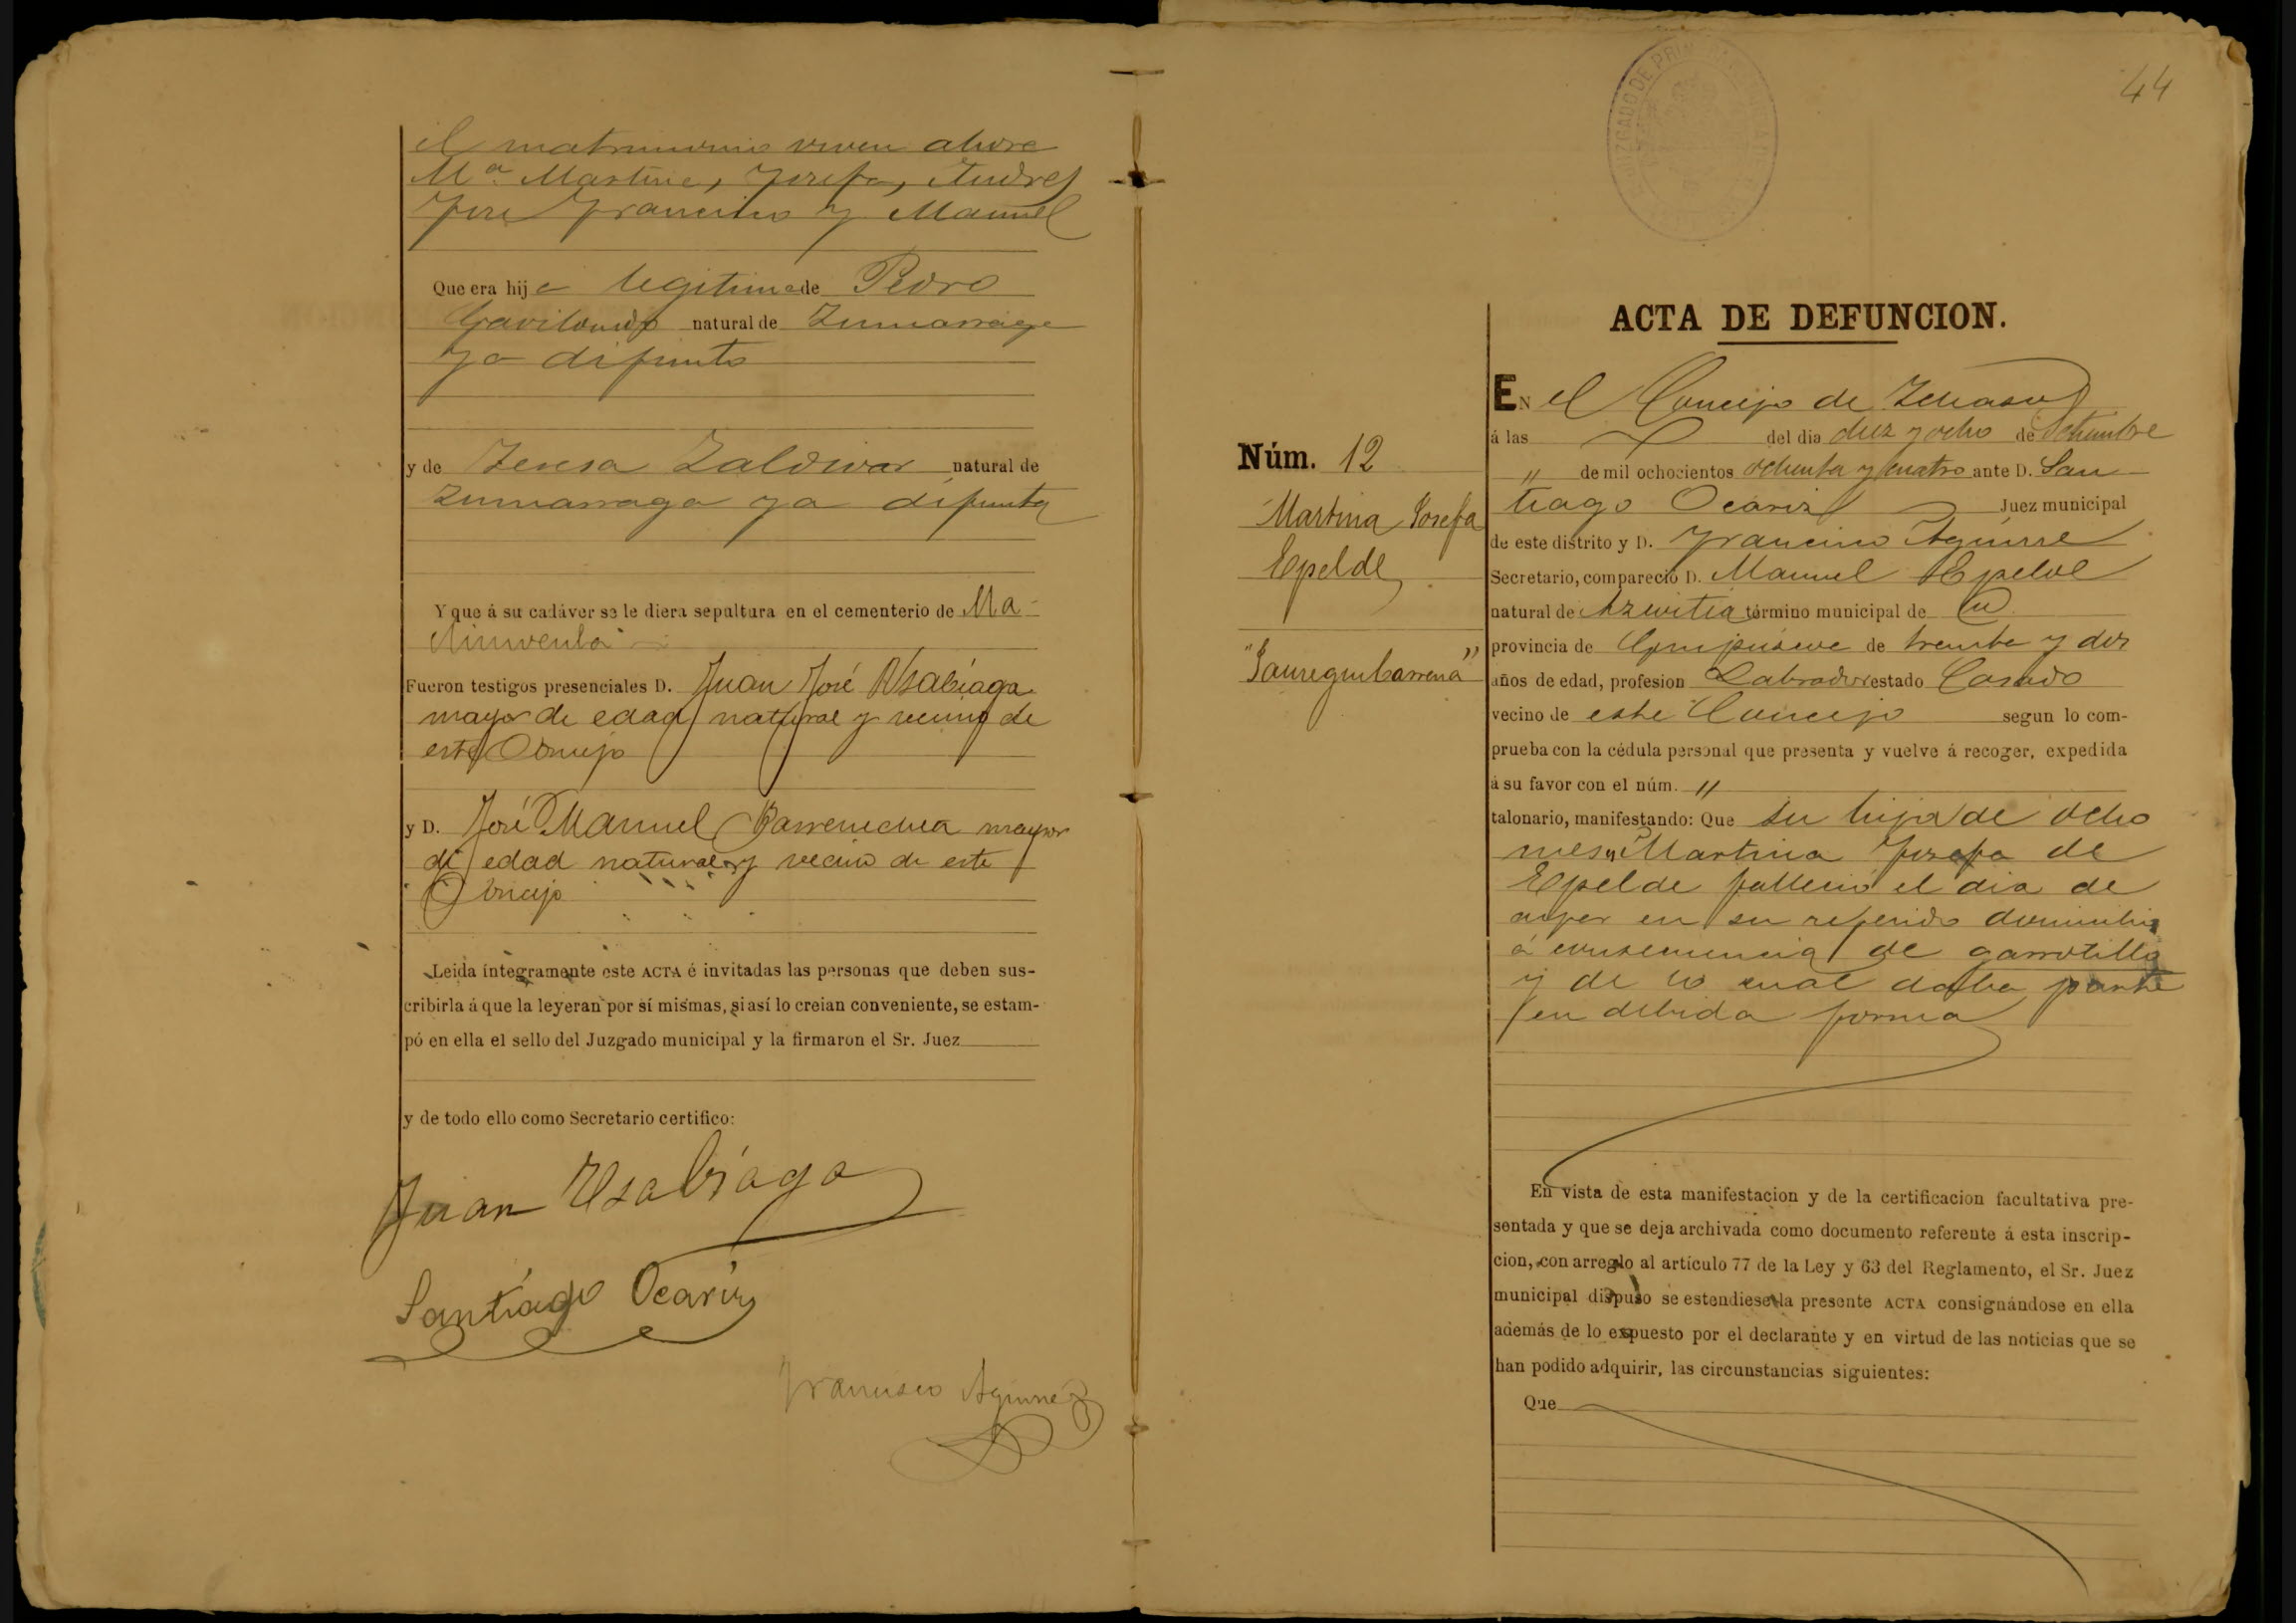 el matrimonio viven ahora
Mª Martina, Josefa, Andres
Jose Francisco y Manuel
Que era hija legitima de Pedro
Gavilondo natural de Zumarraga
ya difunto
y de Teresa Zaldivar natural de
Zumarraga ya difunta
Y que á su cadáver se le diera sepultura en el cementerio de Ma-
Fueron testigos presenciales D. Juan José Usabiaga
mayor de edad natural y vecino de
este Concejo
y D. José Manuel Barrenechea mayor
de edad natural y vecino de este
Concejo
Leida íntegramente este ACTA é invitadas las personas que deben sus-
cribirla á que la leyeran por sí mismas, si así lo creian conveniente, se estam-
pó en ella el sello del Juzgado municipal y la firmaron el Sr. Juez
y de todo ello como Secretario certifico:
Juan Usabiaga
Santiago Ocariz
Francisco Aguirre
44
JUZGADO DE PRIMERA
ACTA DE DEFUNCION.
Núm. 12
Martina Josefa
Epelde
"Jaureguibarrena"
EN el Concejo de Ichaso
á las del dia diez y ocho de Setiembre
" de mil ochocientos ochenta y cuatro ante D. San-
tiago Ocáriz Juez municipal
de este distrito y D. Francisco Aguirre
Secretario, compareció D. Manuel Epelde
natural de Azcoitia término municipal de id
provincia de Guipúzcoa de treinta y dos
años de edad, profesion Labrador estado Casado
vecino de este Concejo segun lo com-
prueba con la cédula personal que presenta y vuelve á recoger, expedida
á su favor con el núm. "
talonario, manifestando: Que su hija de ocho
meses Martina Josefa de
Epelde falleció el dia de
ayer en su referido domicilio
á consecuencia de garrotillo
y de lo cual daba parte
en debida forma
En vista de esta manifestacion y de la certificacion facultativa pre-
sentada y que se deja archivada como documento referente á esta inscrip-
cion, con arreglo al artículo 77 de la Ley y 63 del Reglamento, el Sr. Juez
municipal dispuso se estendiese la presente ACTA consignándose en ella
además de lo expuesto por el declarante y en virtud de las noticias que se
han podido adquirir, las circunstancias siguientes:
Que